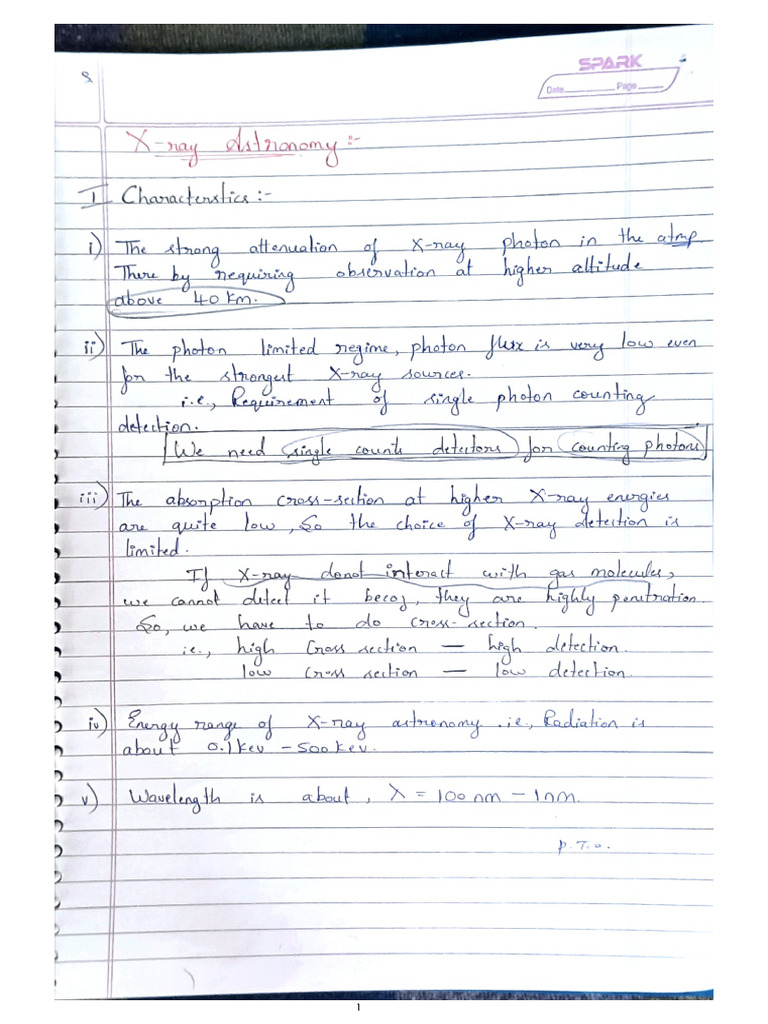 SPARK
Date Page
X-ray Astronomy:-
I Characterstics:-
i) The strong attenuation of X-ray photon in the atmp
There by requiring observation at higher altitude
above 40 km.
ii) The photon limited regime, photon flux is very low even
for the strongest X-ray sources.
i.e., Requirement of single photon counting
detection.
We need single counts detectors for counting photons
iii) The absorption cross-section at higher X-ray energies
are quite low, So the choice of X-ray detection is
limited.
If X-ray donot interact with gas molecules,
we cannot detect it becoz, they are highly penetration.
So, we have to do cross-section.
i.e., high Cross section — high detection.
low cross section — low detection.
iv) Energy range of X-ray astronomy .ie, Radiation is
about 0.1kev - 500kev.
v) Wavelength is about, λ = 100nm - 1nm.
P.T.O.
1